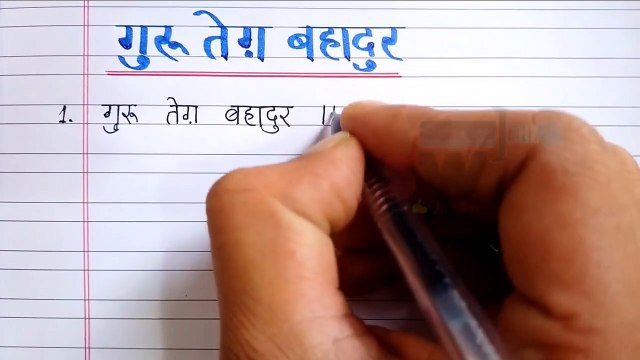 गुरू तेग़ बहादुर
1. गुरू तेग़ बहादुर